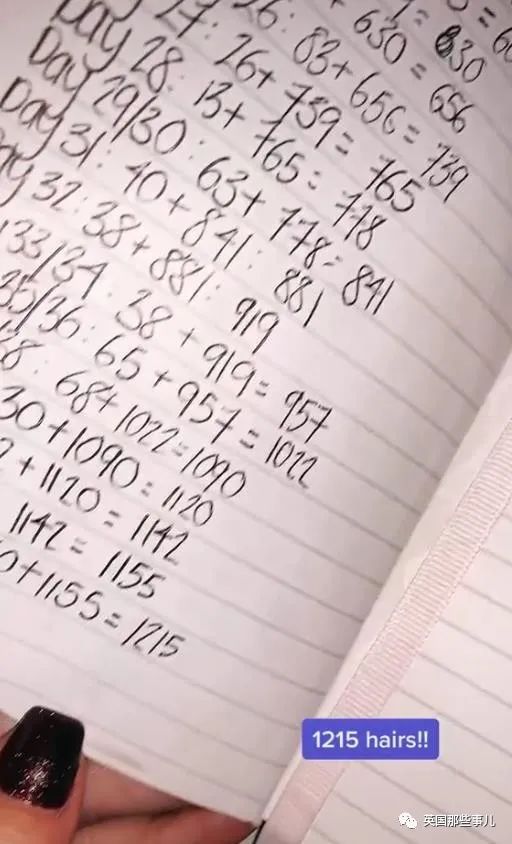 = 630
+ 630 = 656
26: 83+ 656= 739
Day 27: 26+ 739= 765
Day 28: 13+ 765= 778
Day 29/30: 63+ 778= 841
Day 31: 40+ 841: 881
ay 32: 38+ 881: 919
33/34: 38 + 919= 957
35/36: 65 + 957= 1022
8: 68+ 1022=1090
30+1090= 1120
2 +1120= 1142
1142= 1155
0+1155= 1215
1215 hairs!!
英国那些事儿